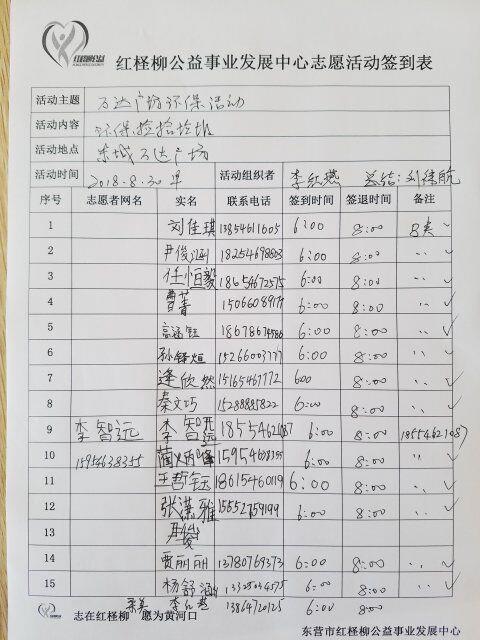 红柽柳公益事业发展中心志愿活动签到表
活动主题 万达广场环保活动
活动内容 环保捡拾垃圾
活动地点 东城万达广场
活动时间 2018.8.30 早 活动组织者 李红燕 总结:刘佳航
序号 志愿者网名 实名 联系电话 签到时间 签退时间 备注
1 刘佳琪 13854611605 6:00 8:00
2 尹俊 18254698803 6:00 8:00 〃
3 任恒毅 18654672575 6:00 8:00 〃
4 曹菁 6:00 8:00 〃
5 6:00 8:00 〃
6 15266003777 6:00 8:00 〃
7 逄欣然 15165467772 600 8:00 〃
8 秦文巧 15288885822 6:00 8:00 〃
9 李智远 李智远 18554621087 6:00 8:00 18554621087
10 15954638355 15954638355 6:00 8:00 〃
11 王哲钰 18615460119 6:00 8:00 〃
12 张潇雅 15552759199 6:00 8:00 〃
13
14 贾丽丽 13780769373 6:00 8:00 〃
15 杨舒涵 6:00 8:00 〃
13864720125 6:00 8:00
志在红柽柳 愿为黄河口
东营市红柽柳公益事业发展中心